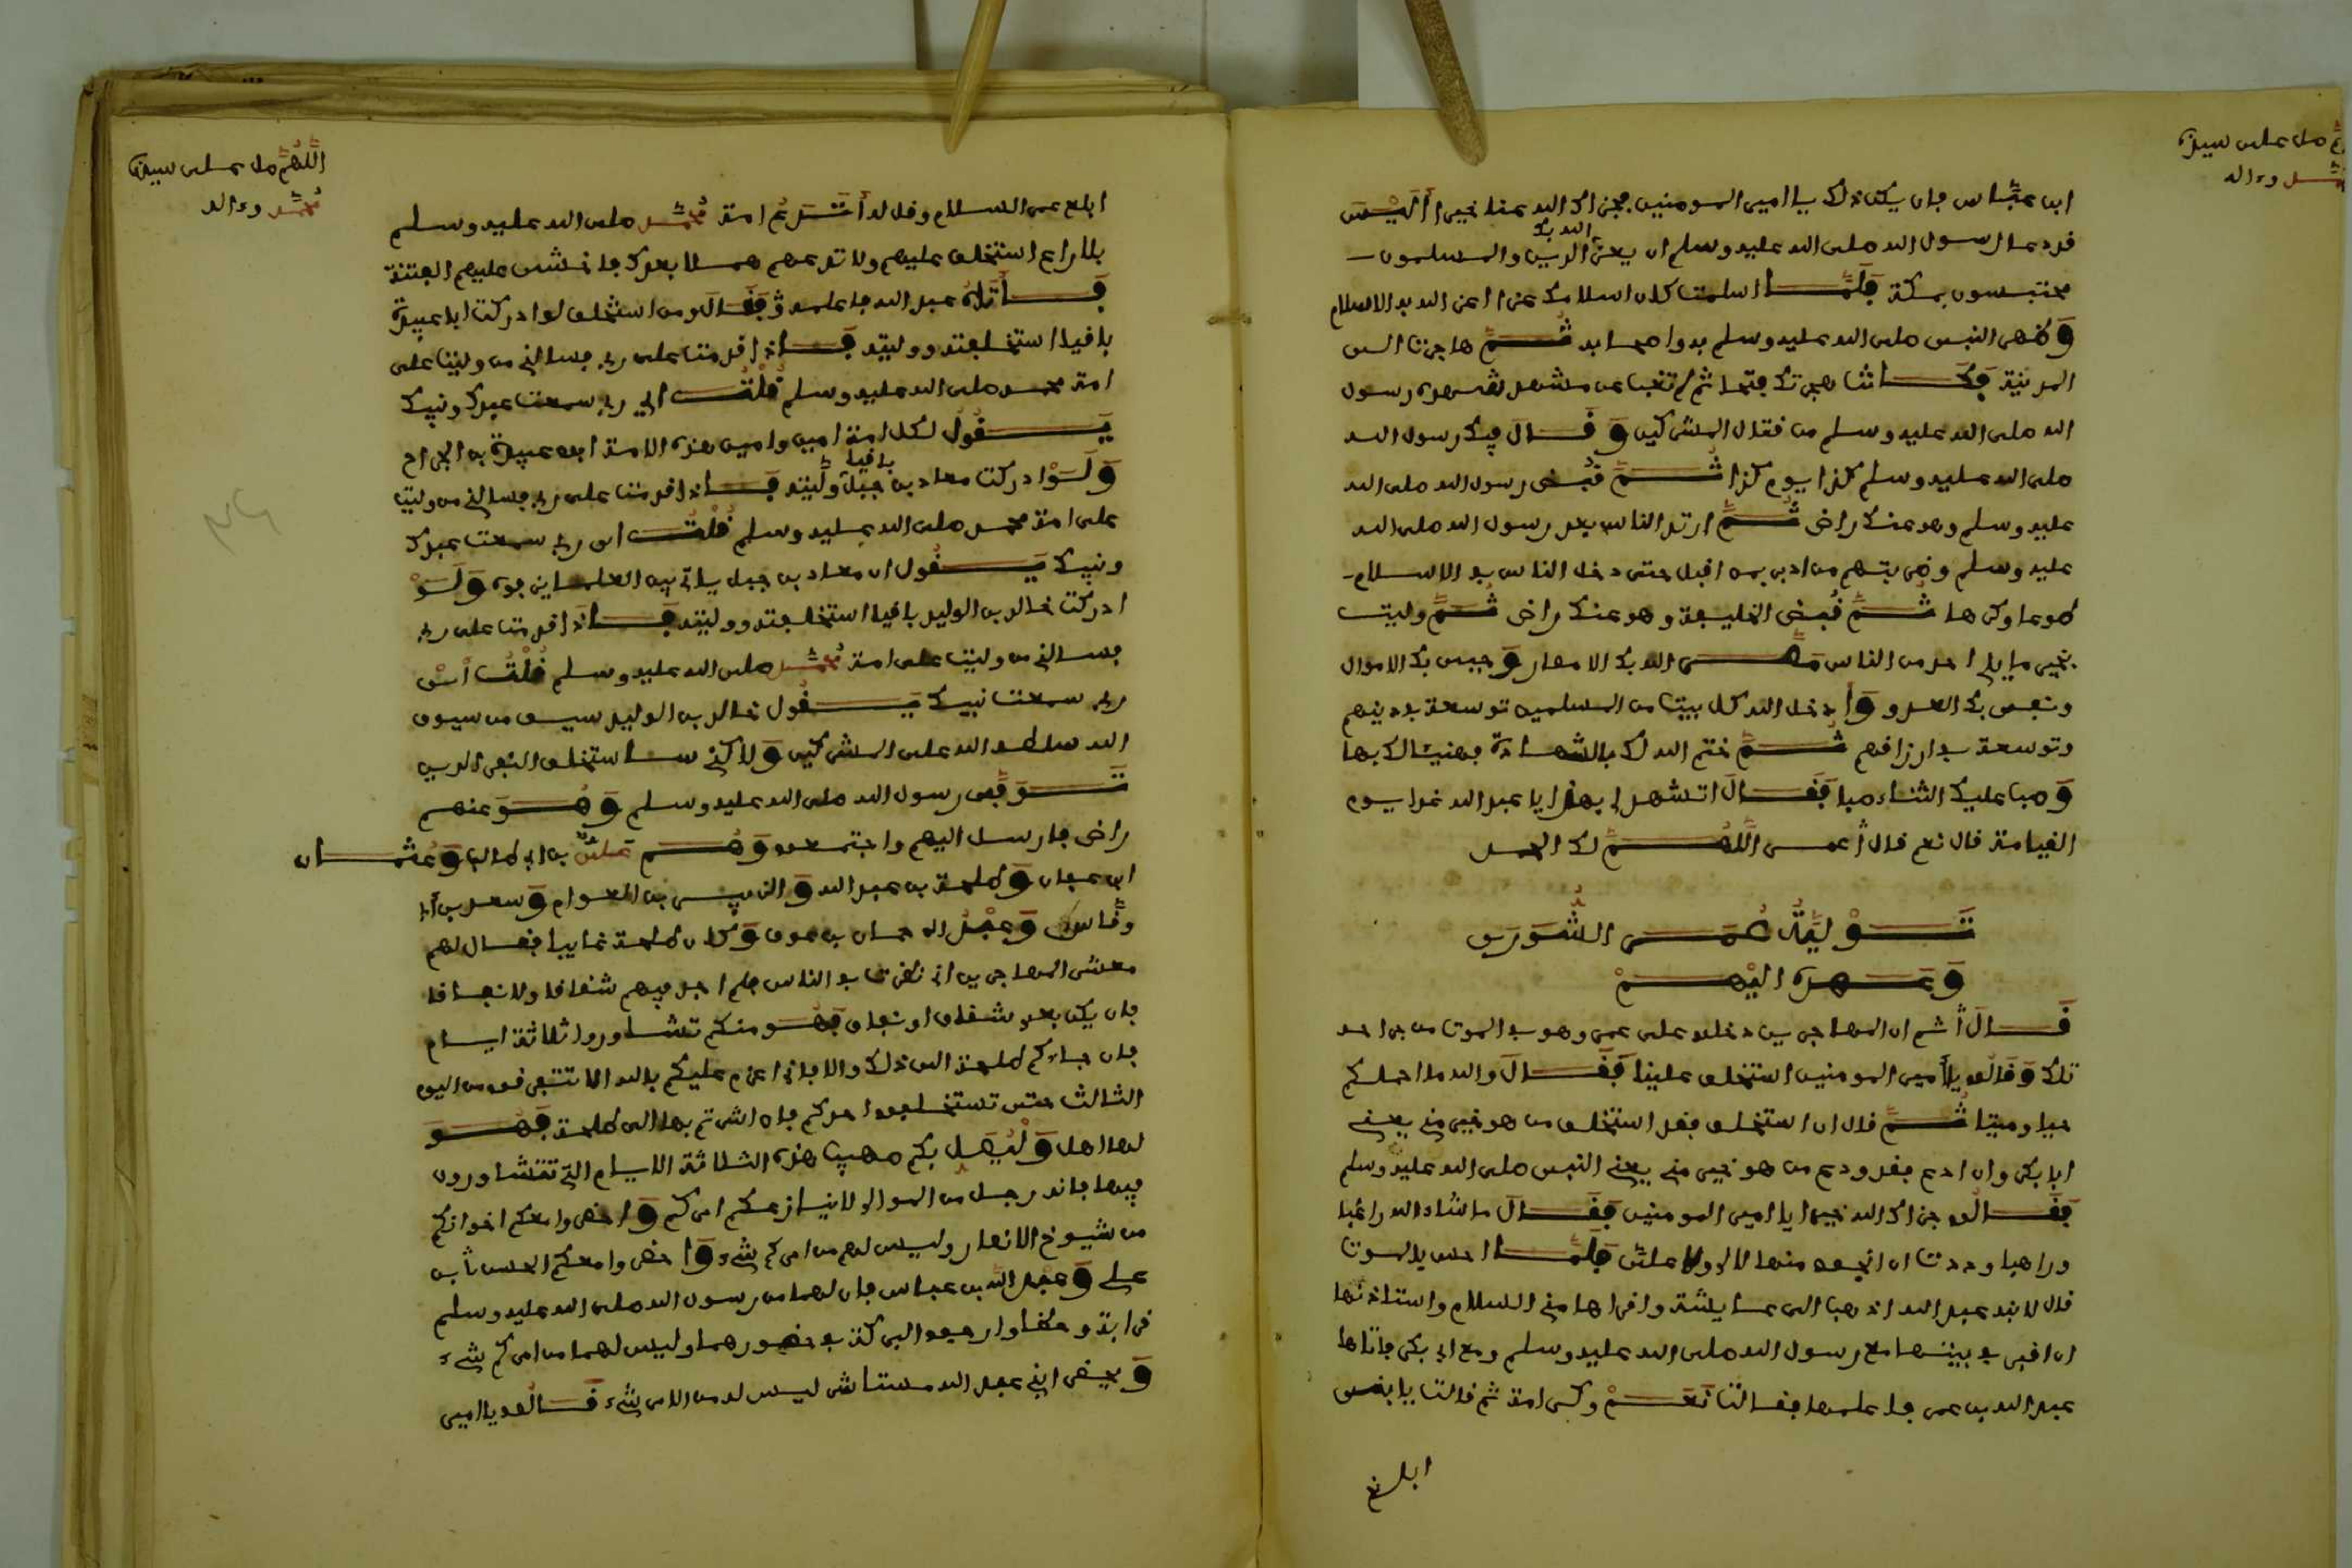 اللهم صل على سيدنا
محمد وءاله
ابن عباس فإن يكن ذلك يا أمير المومنين فجزاك الله عنا خيرا أَلَيْسَ
قد دعا رسول الله صلى الله عليه وسلم ان يعز الله بك الدين والمسلمون
محتبسون بمكة فَلَمَّا اسلمت كان اسلامك عزا اعز الله به الاسلام
وظهر النبي صلى الله عليه وسلم به واصحابه ثُمَّ هاجرت الى
المدينة فكانت هجرتك فتحا ثم لم تغب عن مشهد شهده رسول
الله صلى الله عليه وسلم من فتال المشركين وَقَالَ فيك رسول الله
صلى الله عليه وسلم كذا يوم كذا ثُمَّ قُبض رسول الله صلى الله
عليه وسلم وهو عنك راض ثُمَّ ارتد الناس بعد رسول الله صلى الله
عليه وسلم وضربتهم من ادبر بمن اقبل حتى دخل الناس في الاسلام
طوعا وكرها ثُمَّ قُبض الخليفة وهو عنك راض ثُمَّ وليت
بخير ما يلي احد من الناس مَصَّرَ الله بك الامصار وجبى بك الاموال
ونفى بك العدو وَأدخل الله كل بيت من المسلمين توسعة في دينهم
وتوسعة في ارزاقهم ثُمَّ ختم الله لك بالشهادة فهنيئا لك بها
وصبا عليك الثناء صبا فَقَالَ اتشهد لي بهذا يا عبد الله غدا يوم
القيامة قال نعم قال عمر اللَّهُمَّ لك الحمد
تَوْلِيَّةُ عُمَرَ الشُّورَى
وَعَهْدَه الَيْهِمْ
قَالَ ثم ان المهاجرين دخلوا على عمر وهو في الموت من جراحه
تلك وَقَالُو يا أمير المومنين استخلف علينا فَقَالَ والله ما احملكم
حيا وميتا ثُمَّ قال ان استخلف فقد استخلف من هو خير مني يعني
ابا بكر وان ادع فقد ودع من هو خير مني يعني النبي صلى الله عليه وسلم
فَقَالُو جزاك الله خيرا يا امير المومنين فَقَالَ ما شاء الله راغبا
وراهبا وددت ان انجو منها لا لي ولا علي فَلَمَّا احس بالموت
قال لابنه عبد الله اذهب الى عايشة واقراها مني السلام واستاذنها
ان اقبر في بيتها مع رسول الله صلى الله عليه وسلم ومع ابي بكر فاتاها
عبد الله بن عمر فاعلمها فقالت نَعَمْ وكرامة ثم قالت يا بني
ابلغ
اللَّهُمَّ صل على سيدنا
محمد وءاله
ابلغ عمر السلام وقل له أَتَدَعُ امة محمد صلى الله عليه وسلم
بلا راع استخلف عليهم ولا تدعهم هملا بعدك فاخشى عليهم الفتنة
فَأَتَاهُ عبد الله فاعلمه فَقَالَ ومن استخلف لو ادركت ابا عبيدة
باقيا استخلفته ووليته فَاذا قدمت على ربي فسالني من وليت على
امة محمد صلى الله عليه وسلم قُلْتُ اي رب سمعت عبدك ونبيك
يَقُولُ لكل امة امين وامين هذه الامة ابو عبيدة بن الجراح
وَلَوْ ادركت معاذ بن جبل باقيا وَلَّيته فَاذا قدمت على ربي فسالني من وليت
على امة محمد صلى الله عليه وسلم قُلْتُ اي رب سمعت عبدك
ونبيك يَقُول ان معاذ بن جبل ياتي بين العلماء يوم وَلَوْ
ادركت خالد بن الوليد باقيا استخلفته ووليته فَاذا قدمت على ربي
فسالني من وليت على امة محمد صلى الله عليه وسلم قُلْتُ أَيْ
رب سمعت نبيك يَقُول خالد بن الوليد سيف من سيوف
الله سلطه الله على المشركين وَلاكني ساستخلف النفر الذين
تَوَفَّى رسول الله صلى الله عليه وسلم وَهُوَ عنهم
راض فارسل اليهم واجتمعوا وَهُمْ علي بن ابي طالب وَعثمان
ابن عفان وَطلحة بن عبد الله وَالزبير بن العوام وَسعد بن ابي
وقاص وَعبد الرحمان بن عوف وَكان طلحة غايبا فقال لهم
معشر المهاجرين اني نظرت في الناس فلم اجد فيهم شقاقا ولا نفاقا
فإن يكن بعدي شقاق او نفاق فَهُوَ منكم تشاوروا ثلاثة ايام
فان جاءكم طلحة الى ذلك والا فاني اعزم عليكم بالله الا تتفرقوا من اليوم
الثالث حتى تستخلفوا احدكم فان اشرتم بها الى طلحة فَهُوَ
لها اهل وَلْيُصَلّ بكم صهيب هذه الثلاثة الايام التي تتشاورون
فيها فانه رجل من الموالي لا ينازعكم امركم وَاحضروا معكم اخوانكم
من شيوخ الانصار وليس لهم من امركم شيء وَاحضروا معكم الحسن بن
علي وَعبد الله بن عباس فان لهما من رسول الله صلى الله عليه وسلم
قرابة وحظا وارجو البركة في حضورهما وليس لهما من امركم شيء
وَيحضر ابني عبد الله مستشارا ليس له من الامر شيء قَالُو يا امير